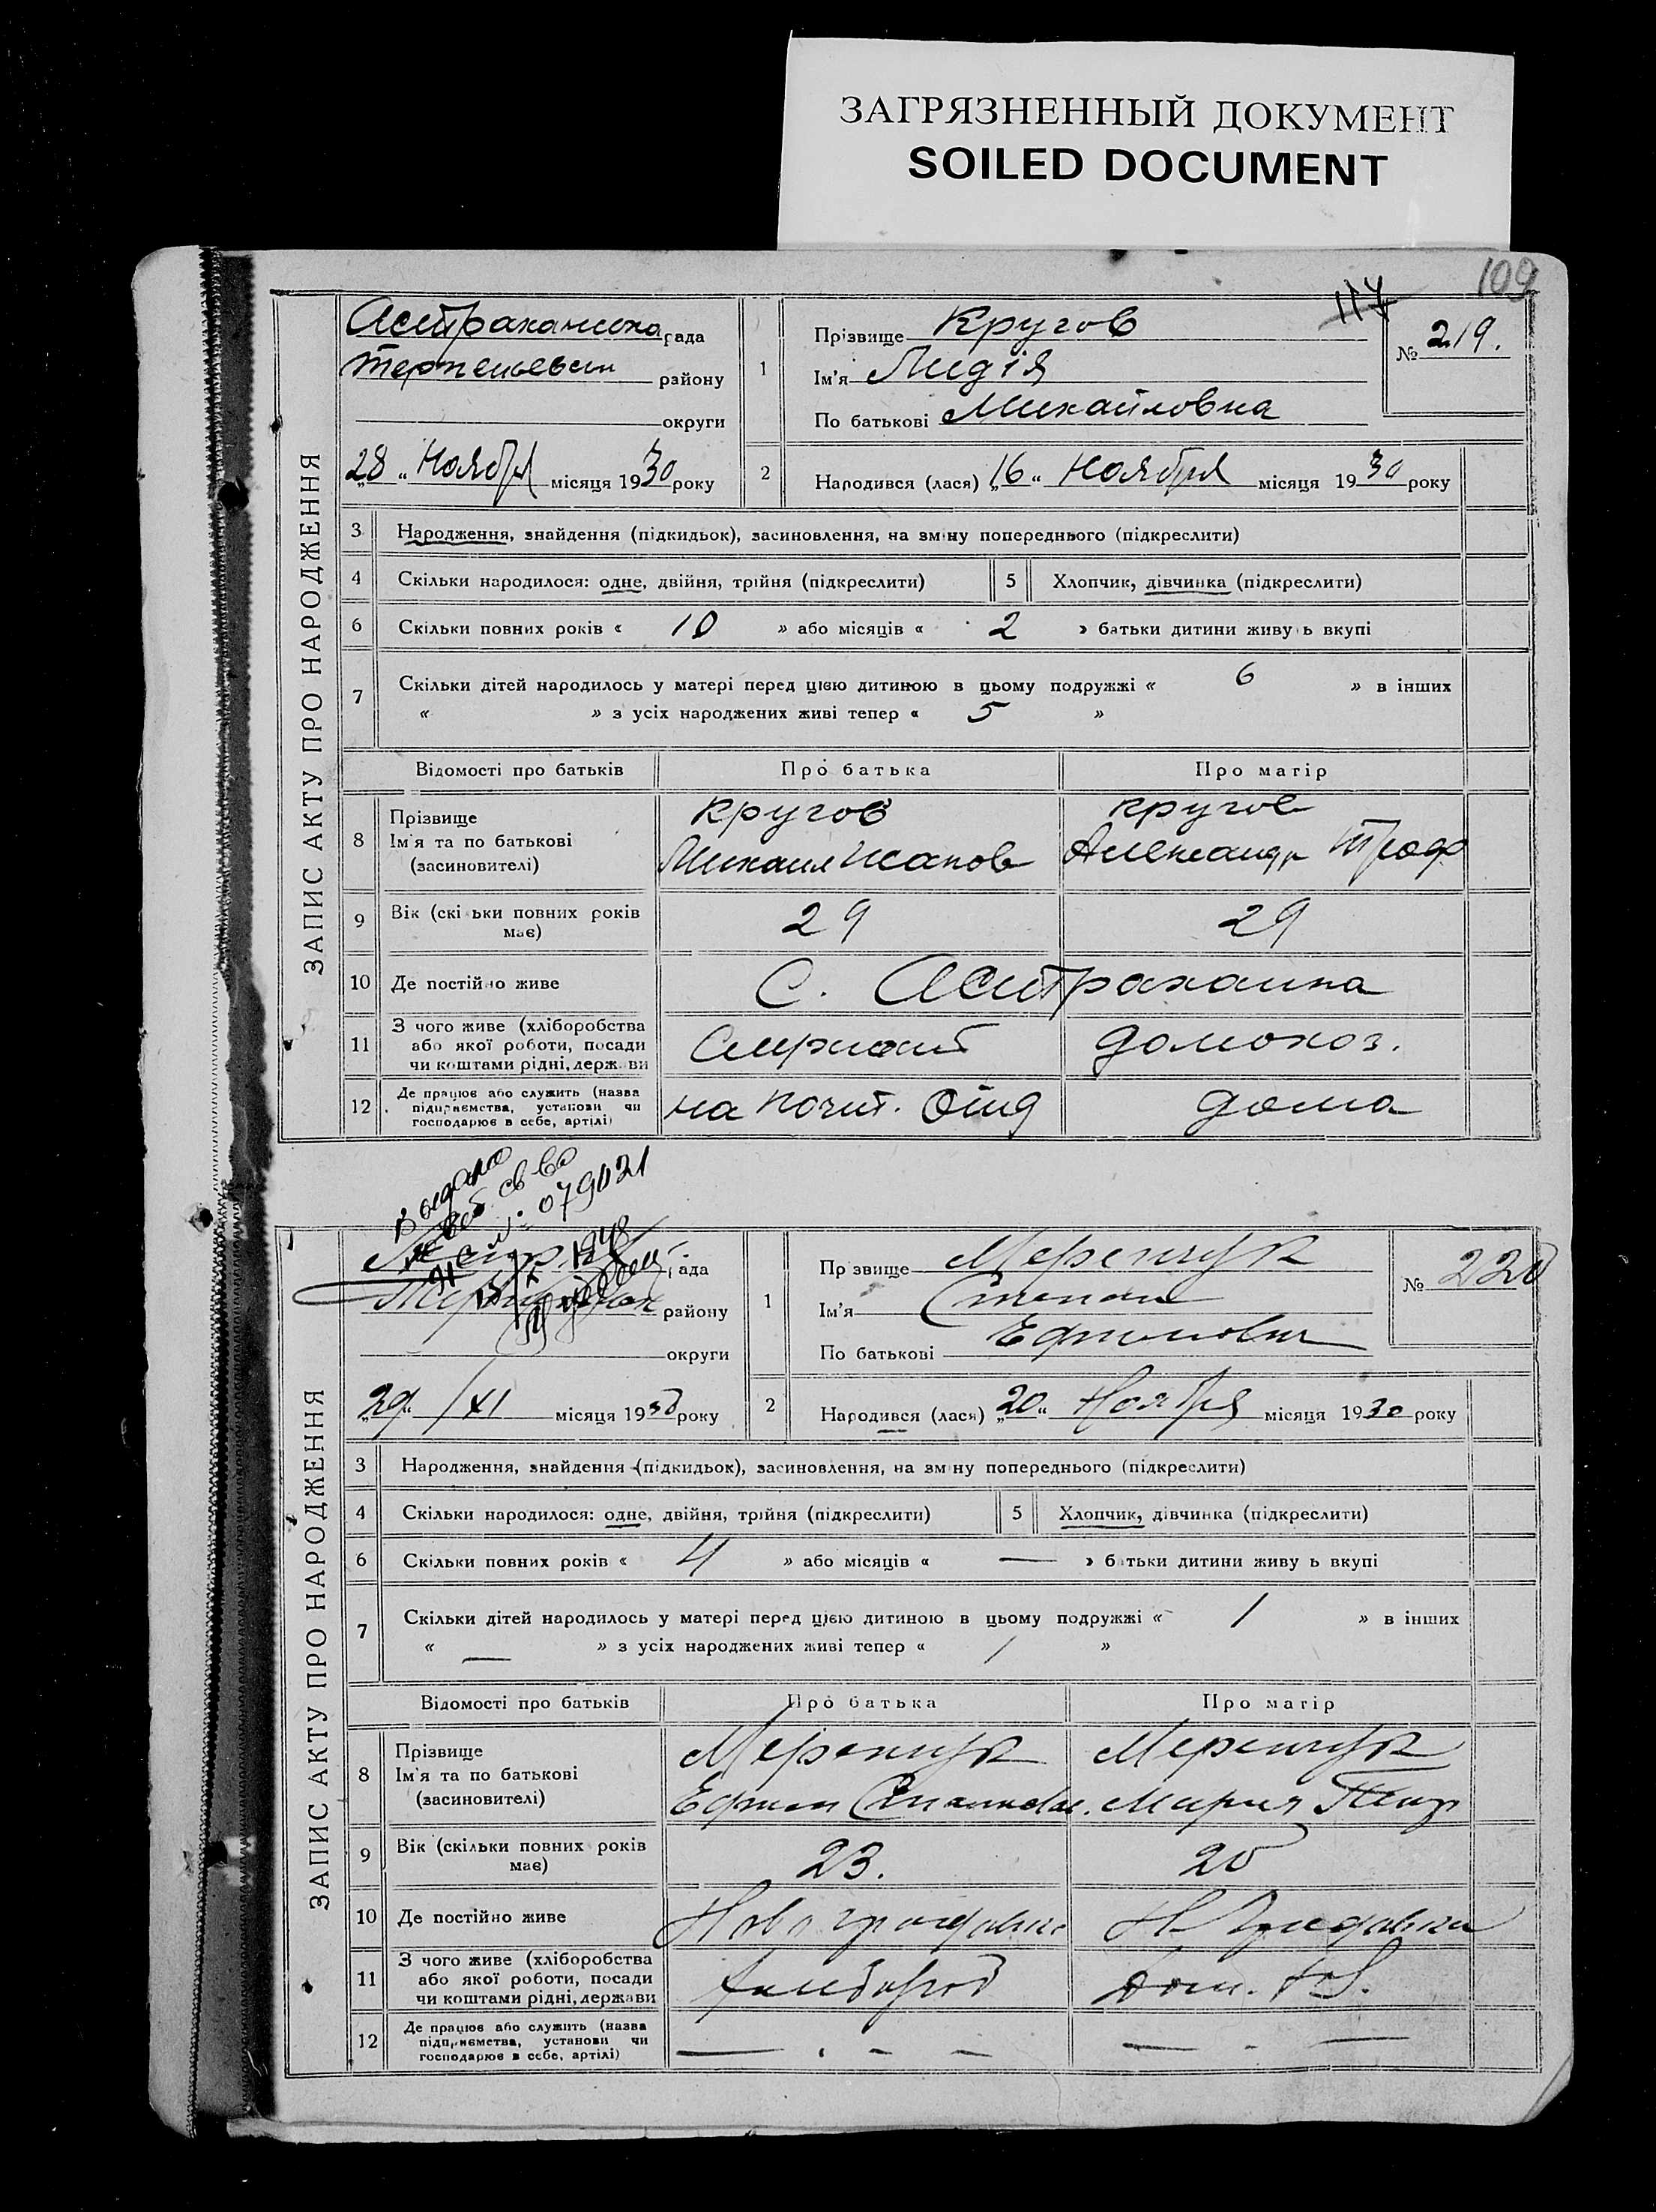 ЗАГРЯЗНЕННЫЙ ДОКУМЕНТ
SOILED DOCUMENT
109
117
ЗАПИС АКТУ ПРО НАРОДЖЕННЯ
Астраханська рада
района району
округи
„28“ Ноября місяця 1930 року
1 Прізвище Кругов
Ім'я Лидія
По батькові Михайловна
№ 219.
2 Народився (лася) „16“ Ноября місяця 1930 року
3 Народження, знайдення (підкидьок), засиновлення, на зміну попереднього (підкреслити)
4 Скільки народилося: одне, двійня, трійня (підкреслити) 5 Хлопчик, дівчинка (підкреслити)
6 Скільки повних років « 10 » або місяців « 2 » батьки дитини живуть вкупі
7 Скільки дітей народилось у матері перед цією дитиною в цьому подружжі « 6 » в інших
« » з усіх народжених живі тепер « 5 »
Відомості про батьків Про батька Про матір
8 Прізвище Кругов Кругов
Ім'я та по батькові Михаил Александр Троф
(засиновителі)
9 Вік (скільки повних років має) 29 29
10 Де постійно живе С. Астраханка
11 З чого живе (хліборобства або якої роботи, посади чи коштами рідні, держави домохоз.
12 Де працює або служить (назва підприємства, установи чи господарює в себе, артілі) на почт. дома
Выдано
св во
079021
ЗАПИС АКТУ ПРО НАРОДЖЕННЯ
рада
району
округи
„29“ /XI місяця 1930 року
1 Прізвище Меренчук
Ім'я Степан
По батькові Ефимович
№ 220
2 Народився (лася) „20“ Ноября місяця 1930 року
3 Народження, знайдення (підкидьок), засиновлення, на зміну попереднього (підкреслити)
4 Скільки народилося: одне, двійня, трійня (підкреслити) 5 Хлопчик, дівчинка (підкреслити)
6 Скільки повних років « 4 » або місяців « — » батьки дитини живуть вкупі
7 Скільки дітей народилось у матері перед цією дитиною в цьому подружжі « 1 » в інших
« — » з усіх народжених живі тепер « 1 »
Відомості про батьків Про батька Про матір
8 Прізвище Меренчук Меренчук
Ім'я та по батькові Ефим Мария
(засиновителі)
9 Вік (скільки повних років має) 23. 20
10 Де постійно живе
11 З чого живе (хліборобства або якої роботи, посади чи коштами рідні, держави хлебороб
12 Де працює або служить (назва підприємства, установи чи господарює в себе, артілі)